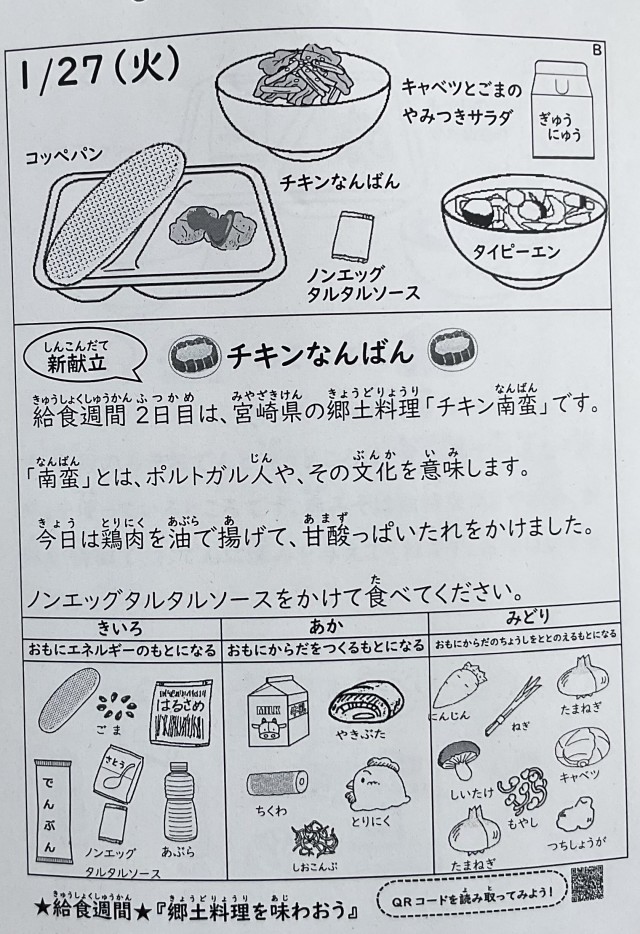 B
1/27(火)
キャベツとごまの
やみつきサラダ
ぎゅう
にゅう
コッペパン
チキンなんばん
ノンエッグ
タルタルソース
タイピーエン
しんこんだて
新献立
チキンなんばん
きゅうしょくしゅうかん ふつかめ みやざきけん きょうどりょうり なんばん
給食週間 2日目は、宮崎県の郷土料理「チキン南蛮」です。
なんばん じん ぶんか いみ
「南蛮」とは、ポルトガル人や、その文化を意味します。
きょう とりにく あぶら あ あまず
今日は鶏肉を油で揚げて、甘酸っぱいたれをかけました。
た
ノンエッグタルタルソースをかけて食べてください。
きいろ
おもにエネルギーのもとになる
ごま
はるさめ
さとう
でんぷん
ノンエッグ
タルタルソース
あぶら
あか
おもにからだをつくるもとになる
MILK
やきぶた
ちくわ
とりにく
しおこんぶ
みどり
おもにからだのちょうしをととのえるもとになる
にんじん
ねぎ
たまねぎ
しいたけ
もやし
キャベツ
たまねぎ
つちしょうが
きゅうしょくしゅうかん きょうどりょうり あじ
★給食週間★『郷土料理を味わおう』
よ と
QRコードを読み取ってみよう!